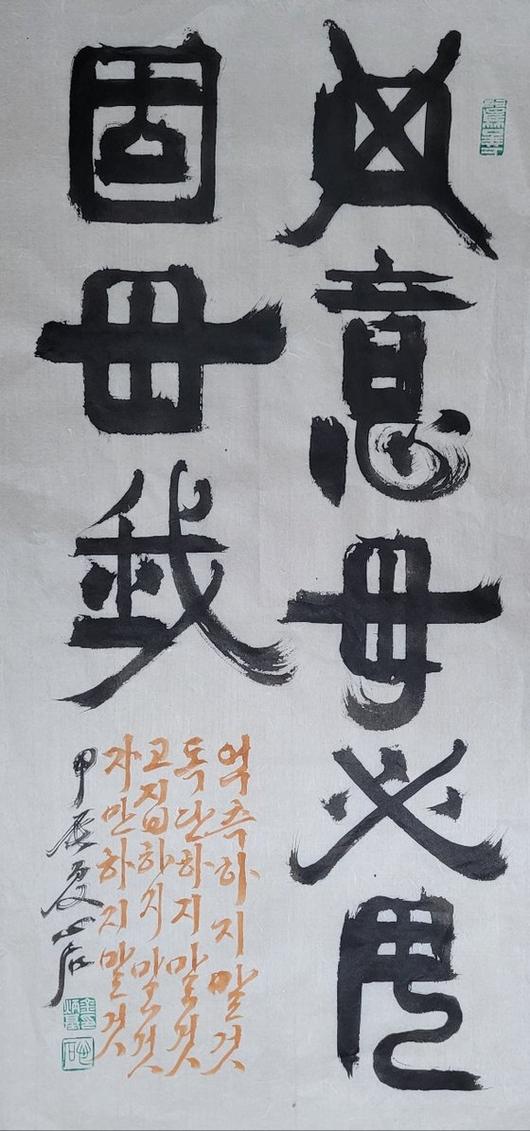 毋意毋必毋
固毋我
억측하지말것
독단하지말것
고집하지말것
자만하지말것
甲辰夏